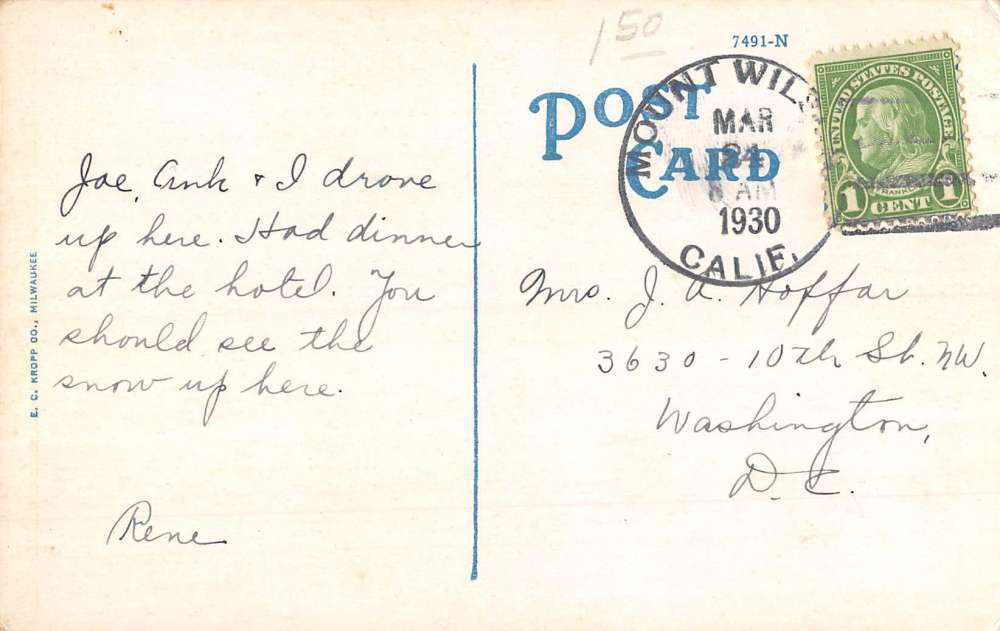 150
7491-N
POST
CARD
MOUNT WIL
MAR
24
AM
1930
CALIF.
UNITED STATES POSTAGE
FRANKLIN
1 CENT 1
Joe, Ank & I drove
up here. Had dinner
at the hotel. You
should see the
snow up here.
Rene
Mrs. J. A. Hoffar
3630 - 10th St. NW.
Washington,
D. C.
E. C. KROPP CO., MILWAUKEE